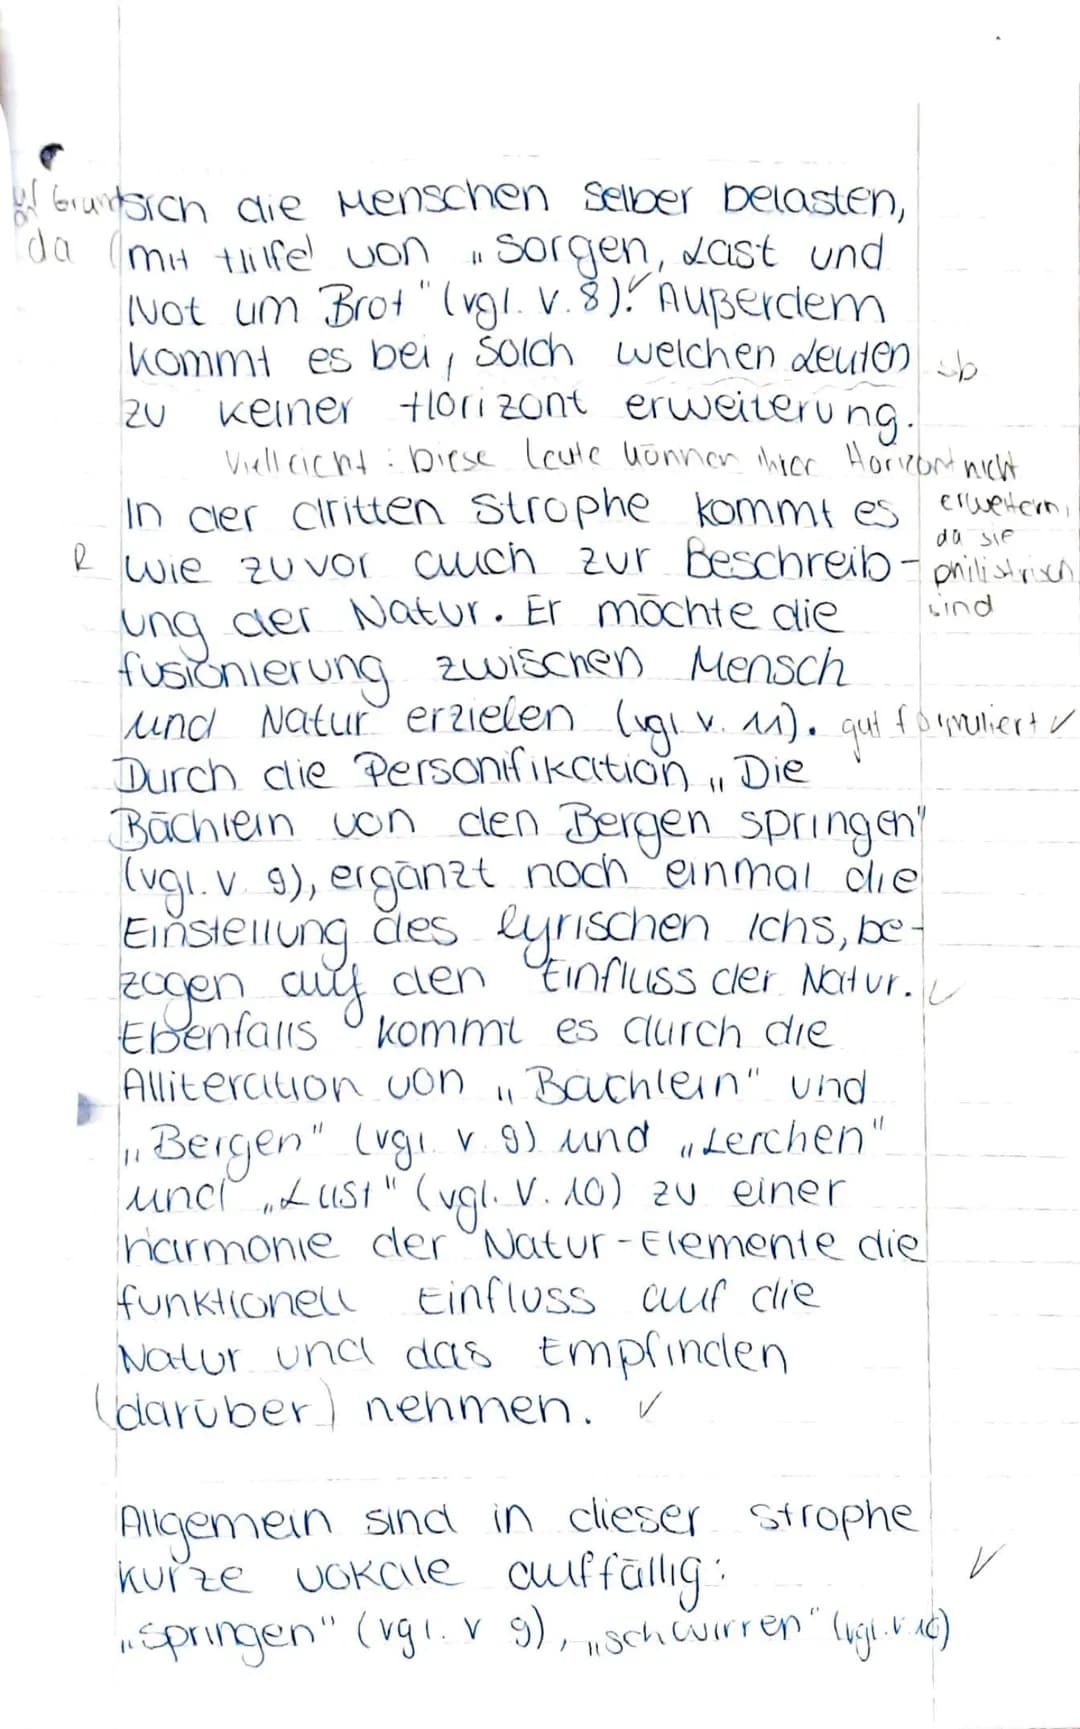 Grund sich die Menschen selber belasten,
da (mit Hilfe) von „Sorgen, Last und
Not um Brot" (vgl. V. 8). ✓ Außerdem
kommt es bei, solch welchen Leuten sb
zu keiner Horizont erweiterung.
Viellcicht: Diese Leute können ihrer Horizont nicht
erweitern,
da sie
philistrisch
sind
In der dritten Strophe kommt es
R wie zuvor auch zur Beschreib-
ung der Natur. Er möchte die
fusionierung zwischen Mensch
und Natur erzielen (vgl. v. 11). gut formuliert ✓
Durch die Personifikation „Die
Bächlein von den Bergen springen"
(vgl. v. 9), ergänzt noch einmal die
Einstellung des lyrischen Ichs, be-
zogen auf den Einfluss der Natur. ✓
Ebenfalls kommt es durch die
Alliteration von „Bächlein" und
„Bergen" (vgl. v. 9) und „Lerchen"
und „Lust" (vgl. V. 10) zu einer
harmonie der Natur-Elemente die
funktionell Einfluss auf die
Natur und das Empfinden
(darüber) nehmen. ✓
Allgemein sind in dieser Strophe
kurze vokale auffällig: ✓
„springen" (vgl. v 9), „schwirren" (vgl. v. 10)